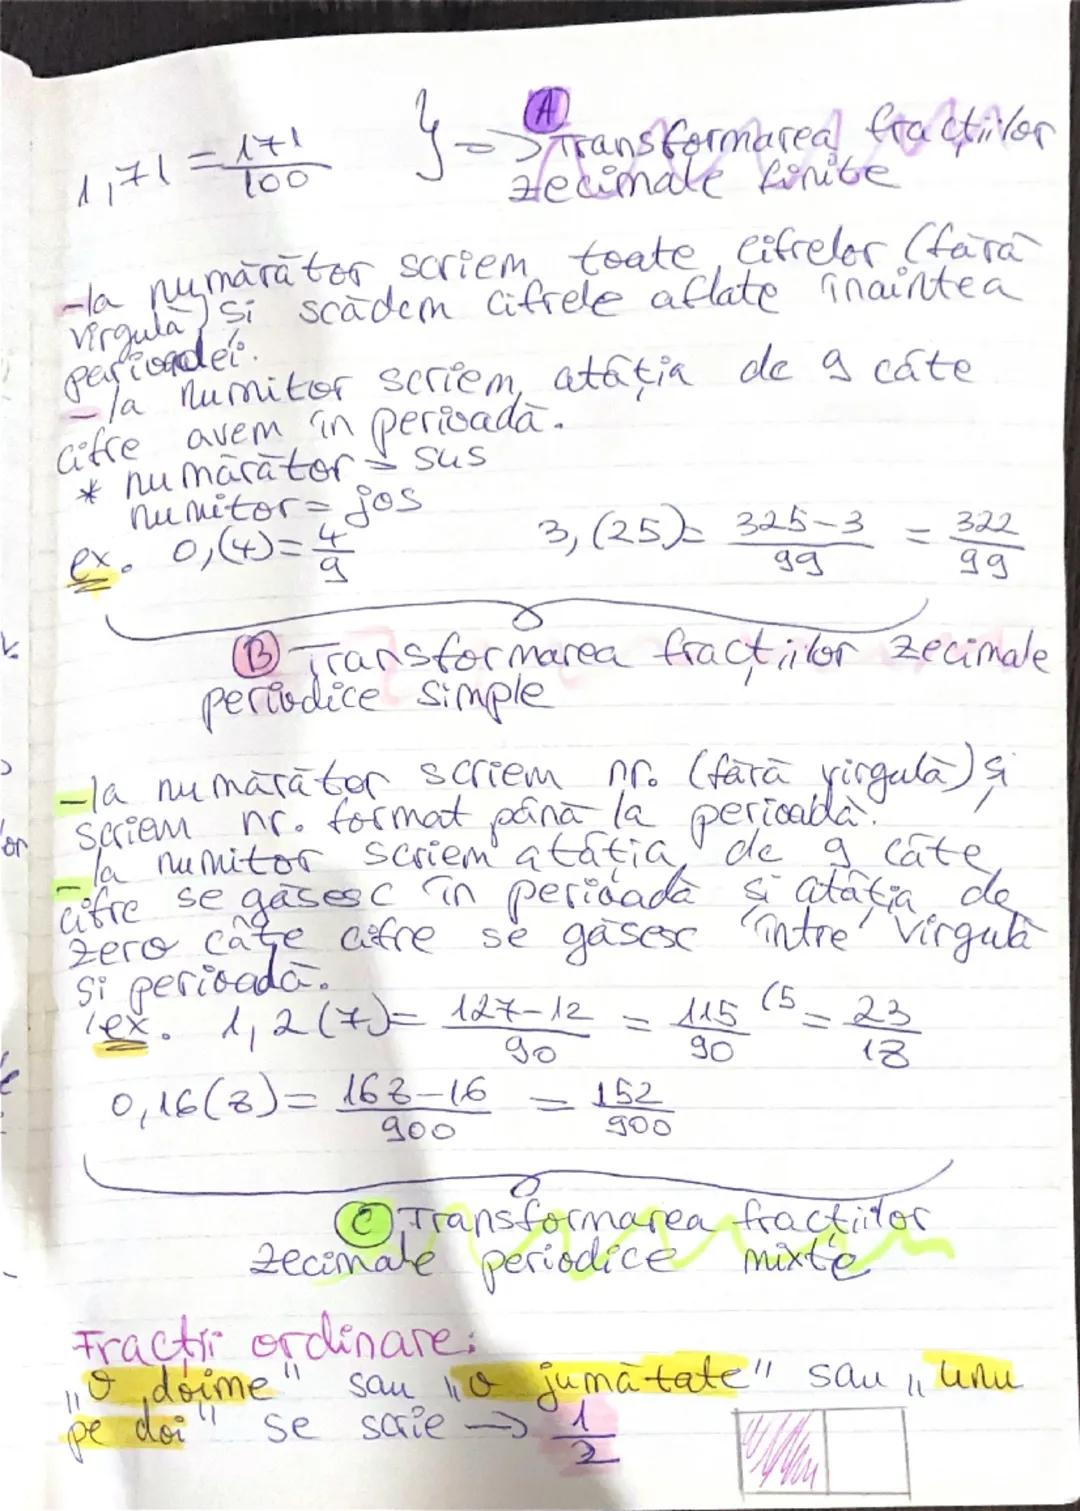 1,71 = 171/100 } => Ⓐ Transformarea fracțiilor
zecimale finite
-la numărător scriem toate cifrelor (fără
virgulă) și scădem cifrele aflate înaintea
perioadei.
-la numitor scriem atâția de 9 câte
cifre avem în perioadă.
* numărător = sus
numitor = jos
ex. 0,(4) = 4/9 3,(25) = 325-3/99 = 322/99
Ⓑ Transformarea fracțiilor zecimale
periodice simple
-la numărător scriem nr. (fără virgulă) și
scriem nr. format până la perioadă.
-la numitor scriem atâția de 9 câte
cifre se găsesc în perioadă și atâția de
zero câte cifre se găsesc între virgulă
și perioadă.
ex. 1,2(7) = 127-12/90 = 115/90 (5 = 23/18
0,16(8) = 168-16/900 = 152/900
Ⓒ Transformarea fracțiilor
zecimale periodice mixte
Fracții ordinare:
„O doime" sau „o jumătate" sau „unu
pe doi" se scrie → 1/2